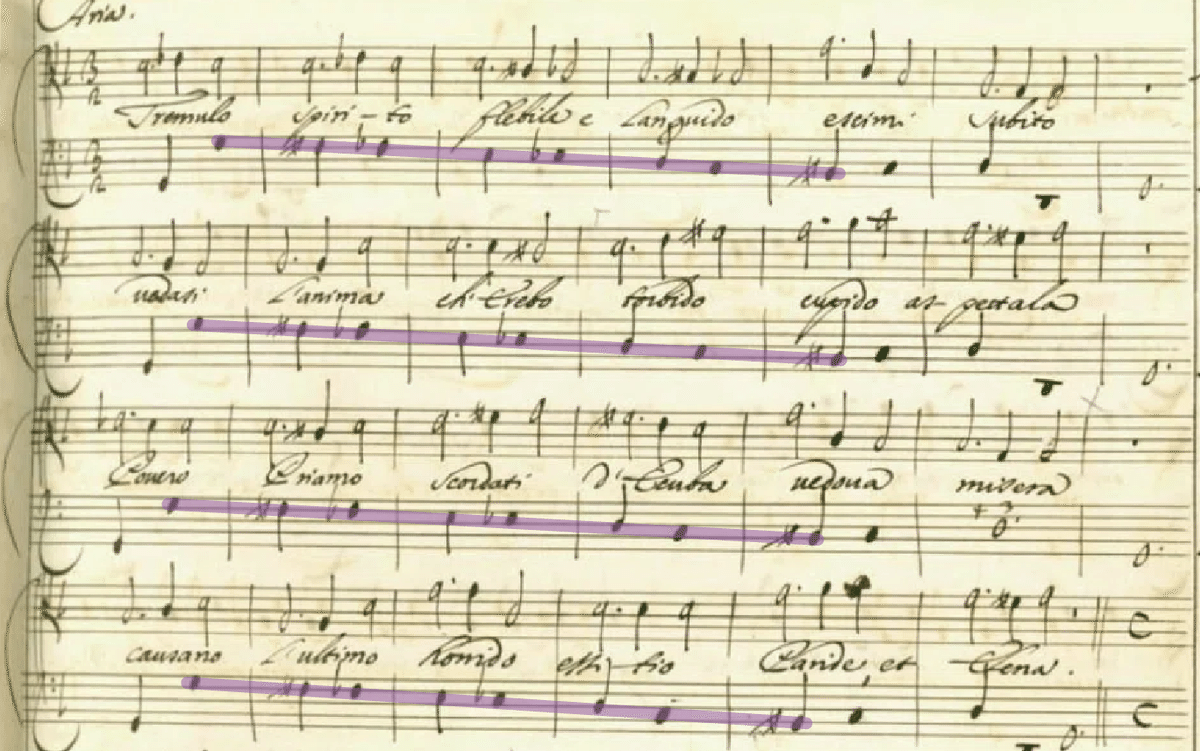 Aria.
Tremulo spiri-to flebile e languido escimi subito
uadasi L'anima ch'Erebo torbido cupido as-pettala
Pouero Priamo scordati d'Ecuba uedoua misera
causano L'ultimo horrido essi-tio Paride et Elena.